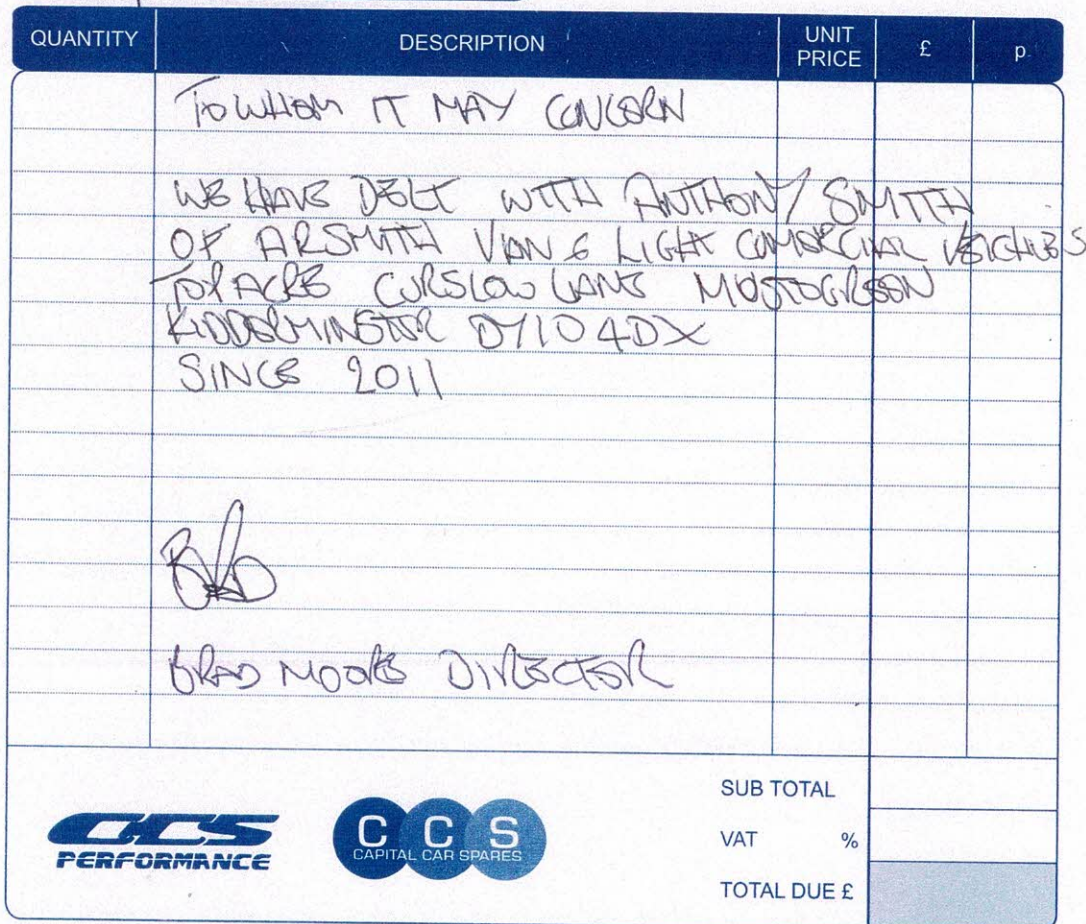 QUANTITY DESCRIPTION UNIT PRICE £ p
TO WHOM IT MAY CONCERN
WE HAVE DELT WITH ANTHONY SMITH
OF ARSMITH VAN & LIGHT COMARCIAL VEICHLES
TOP ACRE CURSLOW LANE MUSTOGREEN
KIDDERMINSTER DY10 4DX
SINCE 2011
BRAD MOORE DIRECTOR
SUB TOTAL
VAT %
TOTAL DUE £
CCS
PERFORMANCE
CCS
CAPITAL CAR SPARES